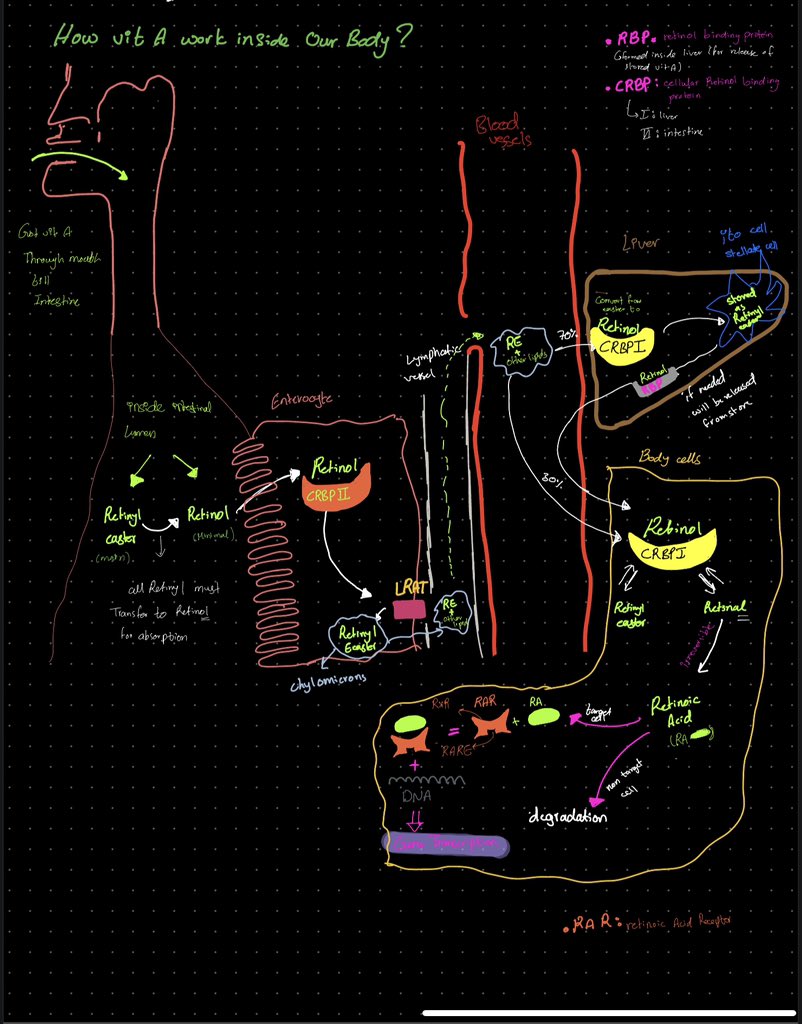 How vit A work inside Our Body?
• RBP: retinol binding protein
(formed inside liver (for release of
stored vit A)
• CRBP: cellular Retinol binding
protein
I: liver
II: intestine
Blood
vessels
Got vit A
Through mouth
till
Intestine
Liver
ito cell
stellate cell
Convert from
easter to
Retinol
CRBPI
stored
as
Retinyl
easter
Retinol
RBP
if needed
will be released
from store
RE
+
other lipids
70%
30%
Lymphatic
vessel
Enterocyte
inside intestinal
lumen
Retinyl
easter
(mostn)
Retinol
(Minimal)
all Retinyl must
Transfer to Retinol
for absorption
Retinol
CRBPII
LRAT
Retinyl
Easter
RE
+
other lipid
chylomicrons
Body cells
Retinol
CRBPI
Retinyl
easter
Retinal
irreversible
Retinoic
Acid
(RA)
target
cell
non target
cell
degradation
RXR
RAR
RA
=
+
RARE
+
DNA
Gene Transcription
• RAR: retinoic Acid Receptor